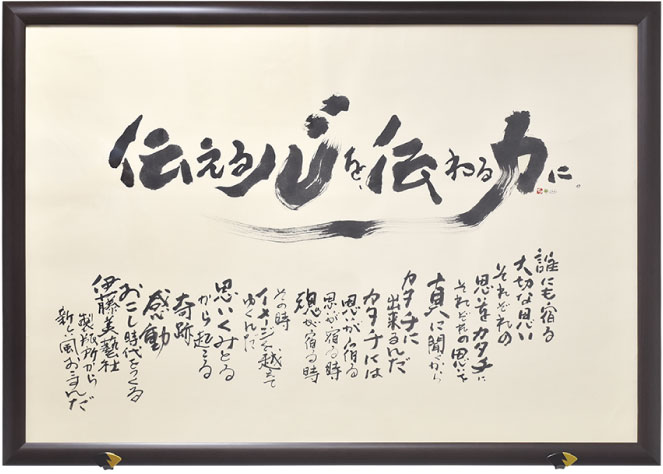 伝える心を、伝わる力に。
誰にも宿る
大切な思い
それぞれの
思をカタチに
それぞれの思いを
真に聞くから
カタチに
出来るんだ
カタチには
思が宿る
思が宿る時
魂が宿る時
その時
イメージを越えて
ゆくんだ
思いくみとる
から起こる
奇跡
感動
おこし時代をつくる
伊藤美藝社
製版所から
新しい風おこすんだ